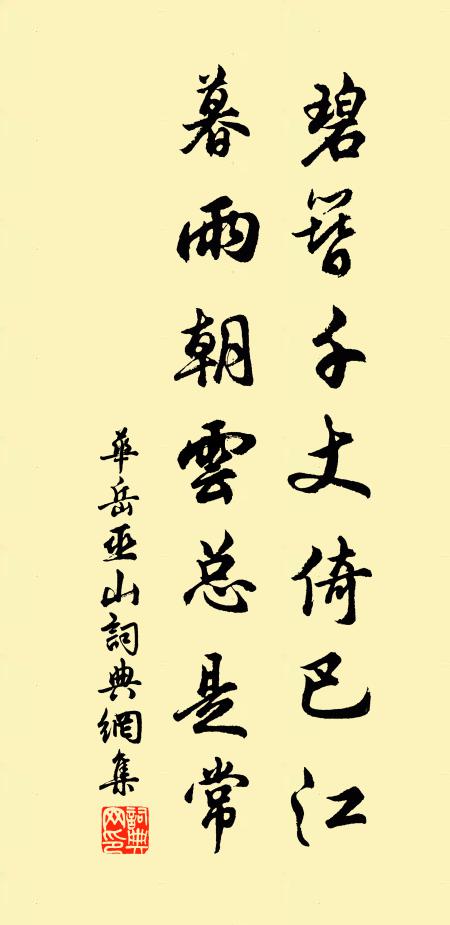 碧簪千丈倚巴江
暮雨朝雲总是常
華岳巫山詞典網集
詞典网印